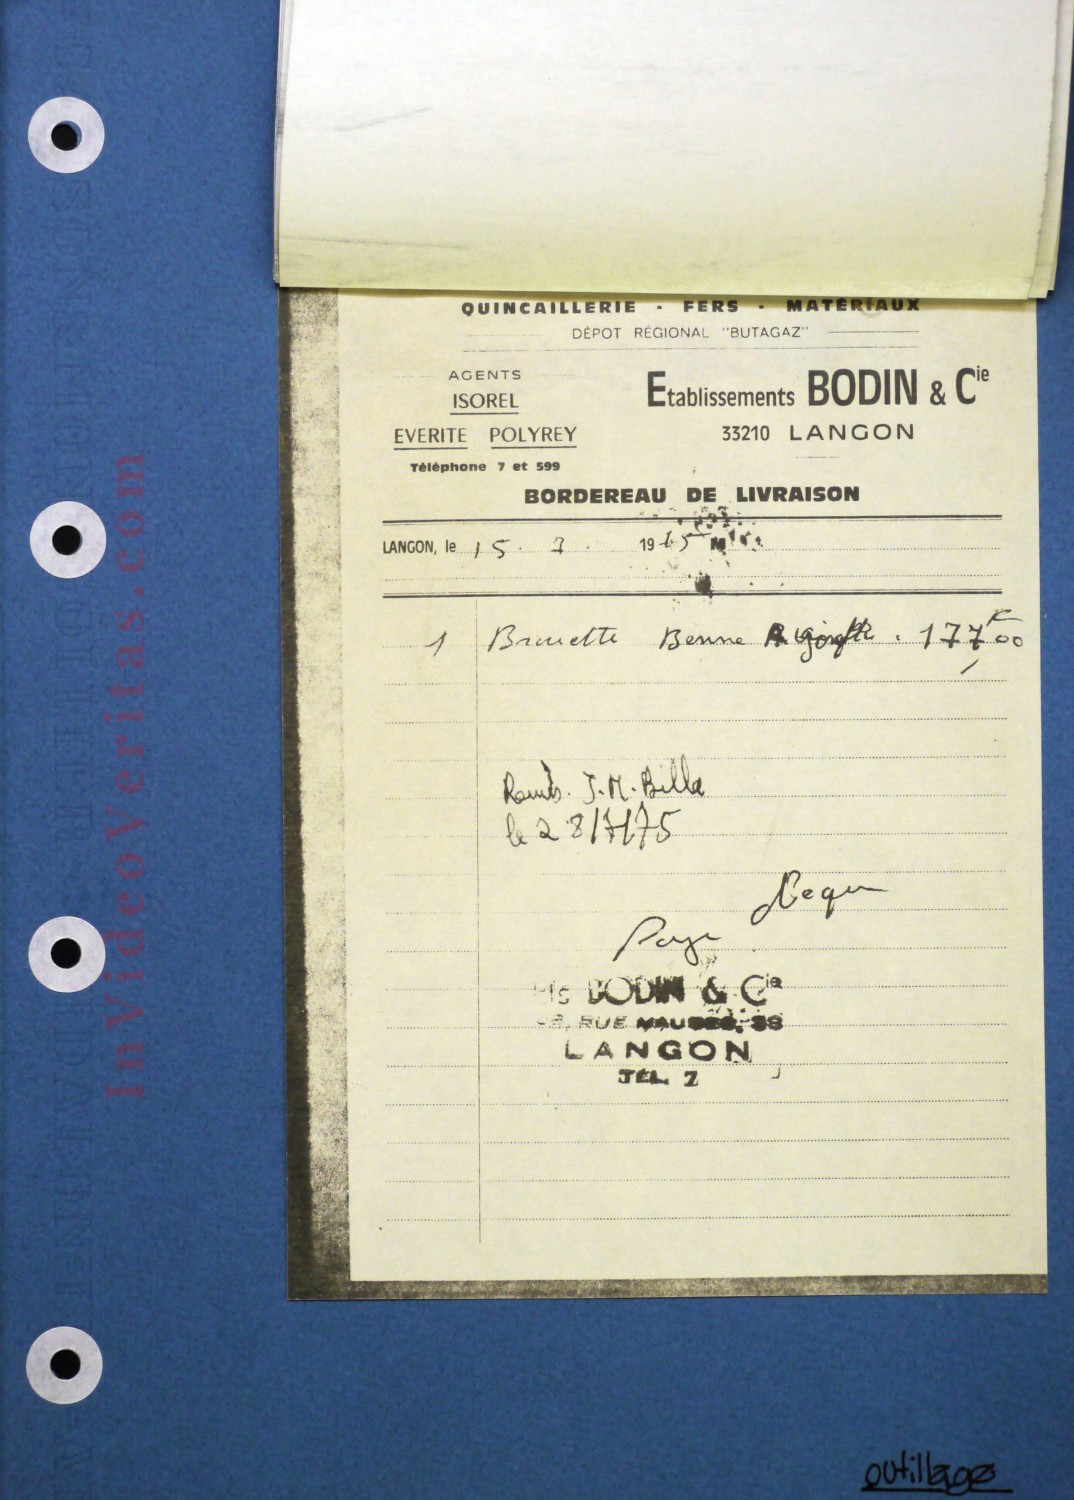 QUINCAILLERIE - FERS - MATÉRIAUX
DÉPOT RÉGIONAL "BUTAGAZ"
AGENTS
ISOREL
EVERITE POLYREY
Téléphone 7 et 599
Etablissements BODIN & Cie
33210 LANGON
BORDEREAU DE LIVRAISON
LANGON, le 15. 7. 19 M
1 Brouette Benne 177F00
J.M. Billa
le 28/7/75
Paye
BODIN & Cie
RUE
LANGON
TÉL. 7
InVideoVeritas.com
outillage